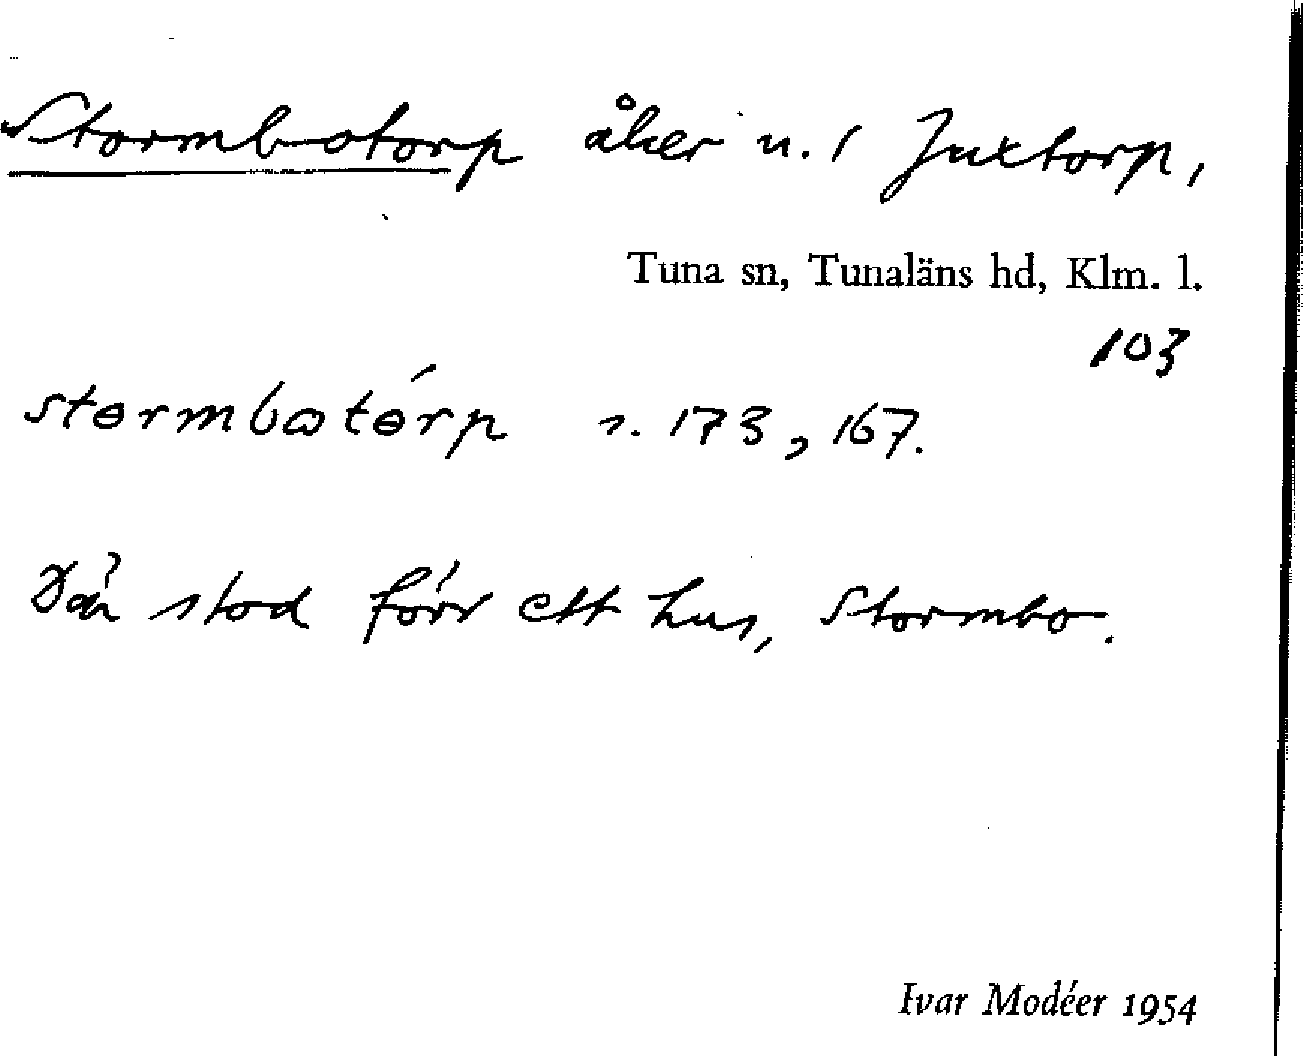 Stormbotorp åker u. / Juxtorp,
Tuna sn, Tunaläns hd, Klm. l.
103
stɵrmbωtɵ́rp s. 173, 167.
Där stod förr ett hus, Stormbo.
Ivar Modéer 1954